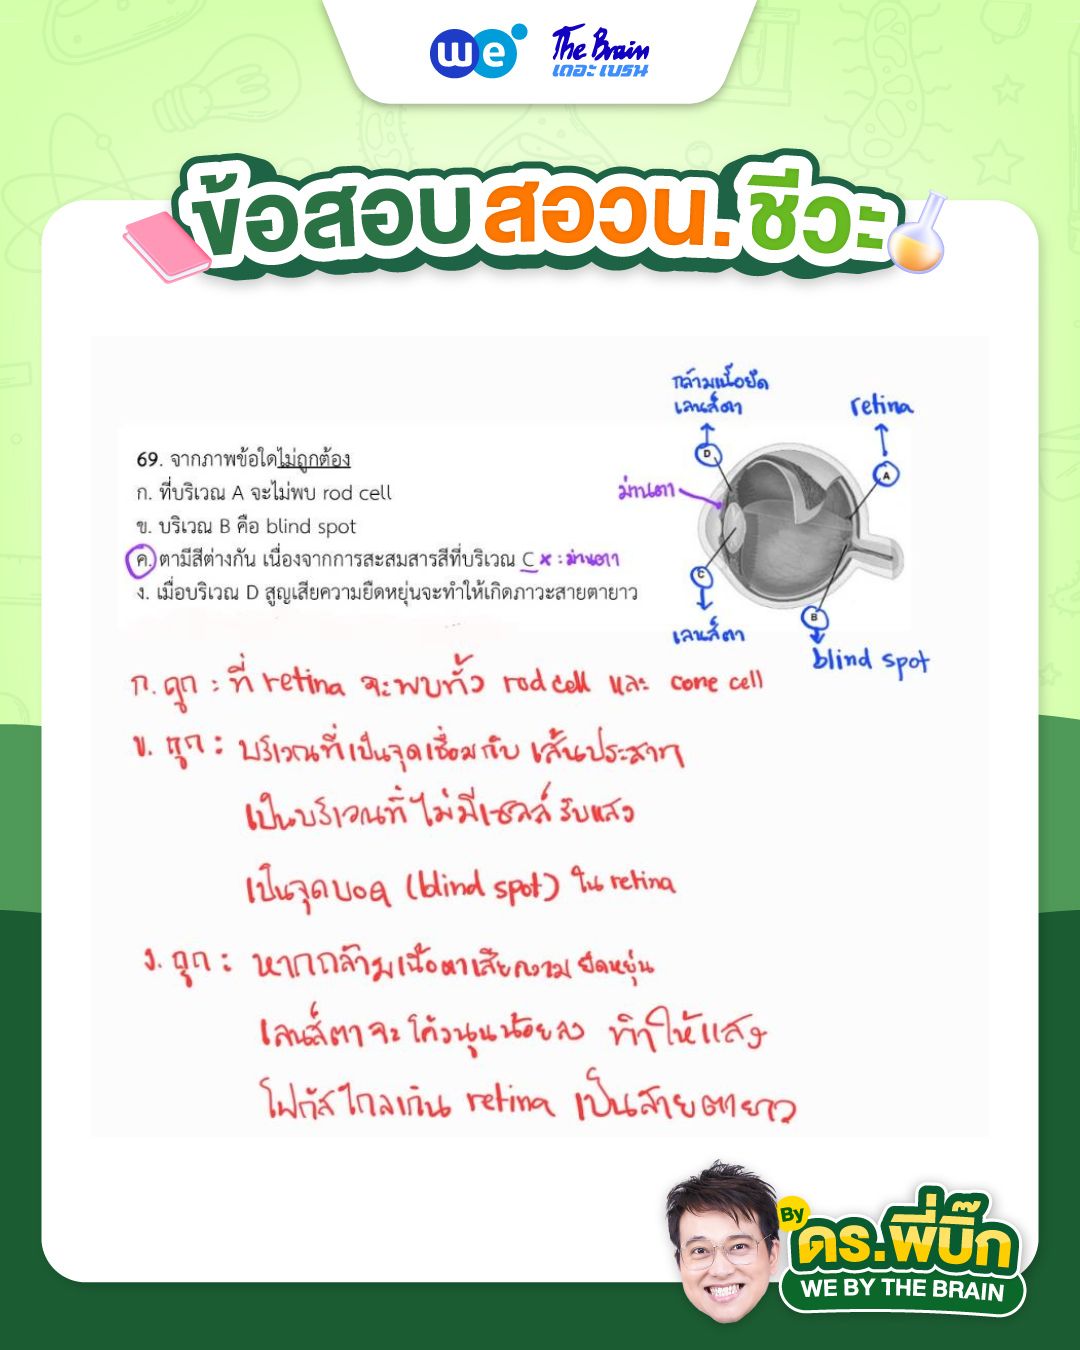 we The Brain
เดอะเบรน
ข้อสอบ สอวน. ชีวะ
กล้ามเนื้อยึด
เลนส์ตา
retina
D
A
ม่านตา
C
เลนส์ตา
B
blind spot
69. จากภาพข้อใดไม่ถูกต้อง
ก. ที่บริเวณ A จะไม่พบ rod cell
ข. บริเวณ B คือ blind spot
ค. ตามีสีต่างกัน เนื่องจากการสะสมสารสีที่บริเวณ C x : ม่านตา
ง. เมื่อบริเวณ D สูญเสียความยืดหยุ่นจะทำให้เกิดภาวะสายตายาว
ก. ถูก : ที่ retina จะพบทั้ง rod cell และ cone cell
ข. ถูก : บริเวณที่เป็นจุดเชื่อมกับ เส้นประสาท
เป็นบริเวณที่ไม่มีเซลล์ รับแสง
เป็นจุดบอด (blind spot) ใน retina
ง. ถูก : หากกล้ามเนื้อตาเสียความ ยืดหยุ่น
เลนส์ตาจะ โค้งนูนน้อยลง ทำให้แสง
โฟกัสไกลเกิน retina เป็นสายตายาว
By ดร.พี่บิ๊ก
WE BY THE BRAIN